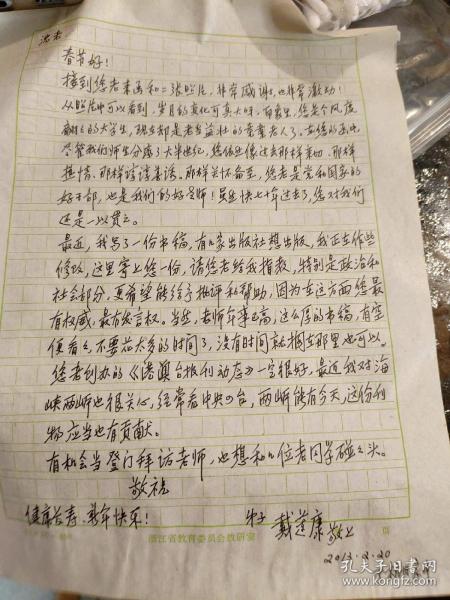 沈老
春节好！
接到您老来函和二张照片，非常感谢，也非常激动！
从照片中可以看到，岁月的变化可真大呀，
翩翩的大学生，现在却是老当益壮的耄耋老人了。在您的函中，
尽管我们师生分离了大半世纪，您依然像过去那样亲切、那样
热情、那样谆谆善诱、那样关怀备至，您老是党和国家的
好干部，也是我们的好老师！虽然快七十年过去了，您对我们
还是一以贯之。
最近，我写了一份书稿，有几家出版社想出版，我正在作些
修改，这里寄上给一份，请您老给我指教，特别是政治和
社会部分，更希望能给予批评和帮助，因为在这方面您最
有权威、最有发言权。当然，老师年事已高，这么厚的书稿，有空
便看看，不要花太多的时间了，没有时间就搁在那里也可以。
您老创办的《港澳台报刊动态》一定很好，最近我对海
峡两岸也很关心，经常看中央四台，两岸能有今天，这份刊
物应当也有贡献。
有机会当登门拜访老师，也想和几位老同学碰碰头。
敬祝
健康长寿、新年快乐！
戴莲康敬上
浙江省教育委员会教研室
页
2013.2.20
孔夫子旧书网